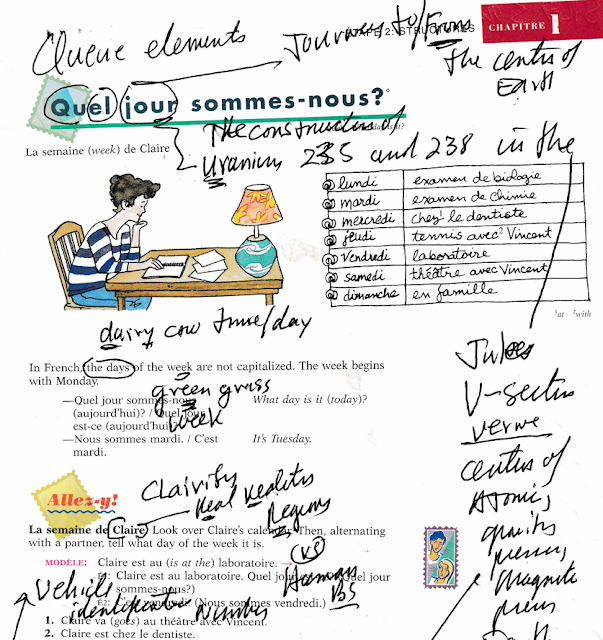 ÉTAPE 2: STRUCTURES
CHAPITRE 1
Queue elements
Journey to/From
the center of
Earth
Quel jour sommes-nous?
The construction of
La semaine (week) de Claire
Uranium 235 and 238 in the
lundi examen de biologie
mardi examen de chimie
mercredi chez¹ le dentiste
jeudi tennis avec² Vincent
vendredi laboratoire
samedi théâtre avec Vincent
dimanche en famille
¹at ²with
dairy cow time/day
In French, the days of the week are not capitalized. The week begins
with Monday.
green grass
week
—Quel jour sommes-nous What day is it (today)?
(aujourd'hui)? / Quel jour
est-ce (aujourd'hui)?
—Nous sommes mardi. / C'est It's Tuesday.
mardi.
Jules
V-section
verne
center of
Atomic
gravity
Clairity
Real Realities
Regions
Allez-y!
La semaine de Claire Look over Claire's calendar. Then, alternating
with a partner, tell what day of the week it is.
MODÈLE: Claire est au (is at the) laboratoire. →
É1: Claire est au laboratoire. Quel jour sommes-nous? (Quel jour
sommes-nous?)
É2: C'est vendredi. (Nous sommes vendredi.)
Vehicle
identification Number
1. Claire va (goes) au théâtre avec Vincent.
2. Claire est chez le dentiste.